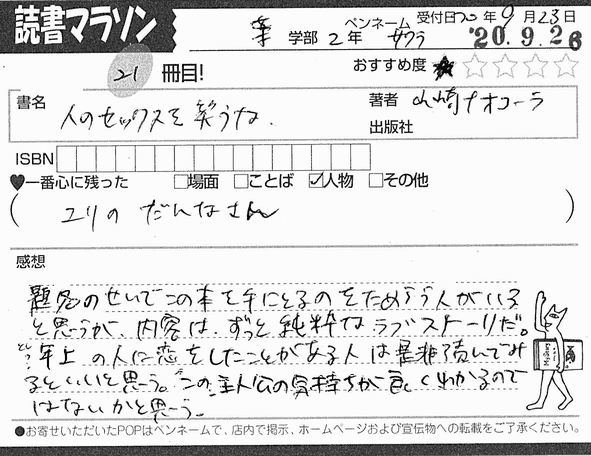 読書マラソン
薬 学部 2年 ペンネーム サクラ 受付日20年9月23日
'20.9.26
21 冊目! おすすめ度 ★☆☆☆☆
書名 人のセックスを笑うな. 著者 山崎ナオコーラ
出版社
ISBN
♥一番心に残った □場面 □ことば ☑人物 □その他
( ユリの だんなさん )
感想
題名のせいでこの本を手にとるのをためらう人がいる
と思うが、内容は、ずっと純粋なラブストーリだ。
年上の人に恋をしたことがある人は是非読んでみ
るといいと思う。この主人公の気持ちが良くわかるので
はないかと思う。
●お寄せいただいたPOPはペンネームで、店内で掲示、ホームページおよび宣伝物への転載をご了承ください。